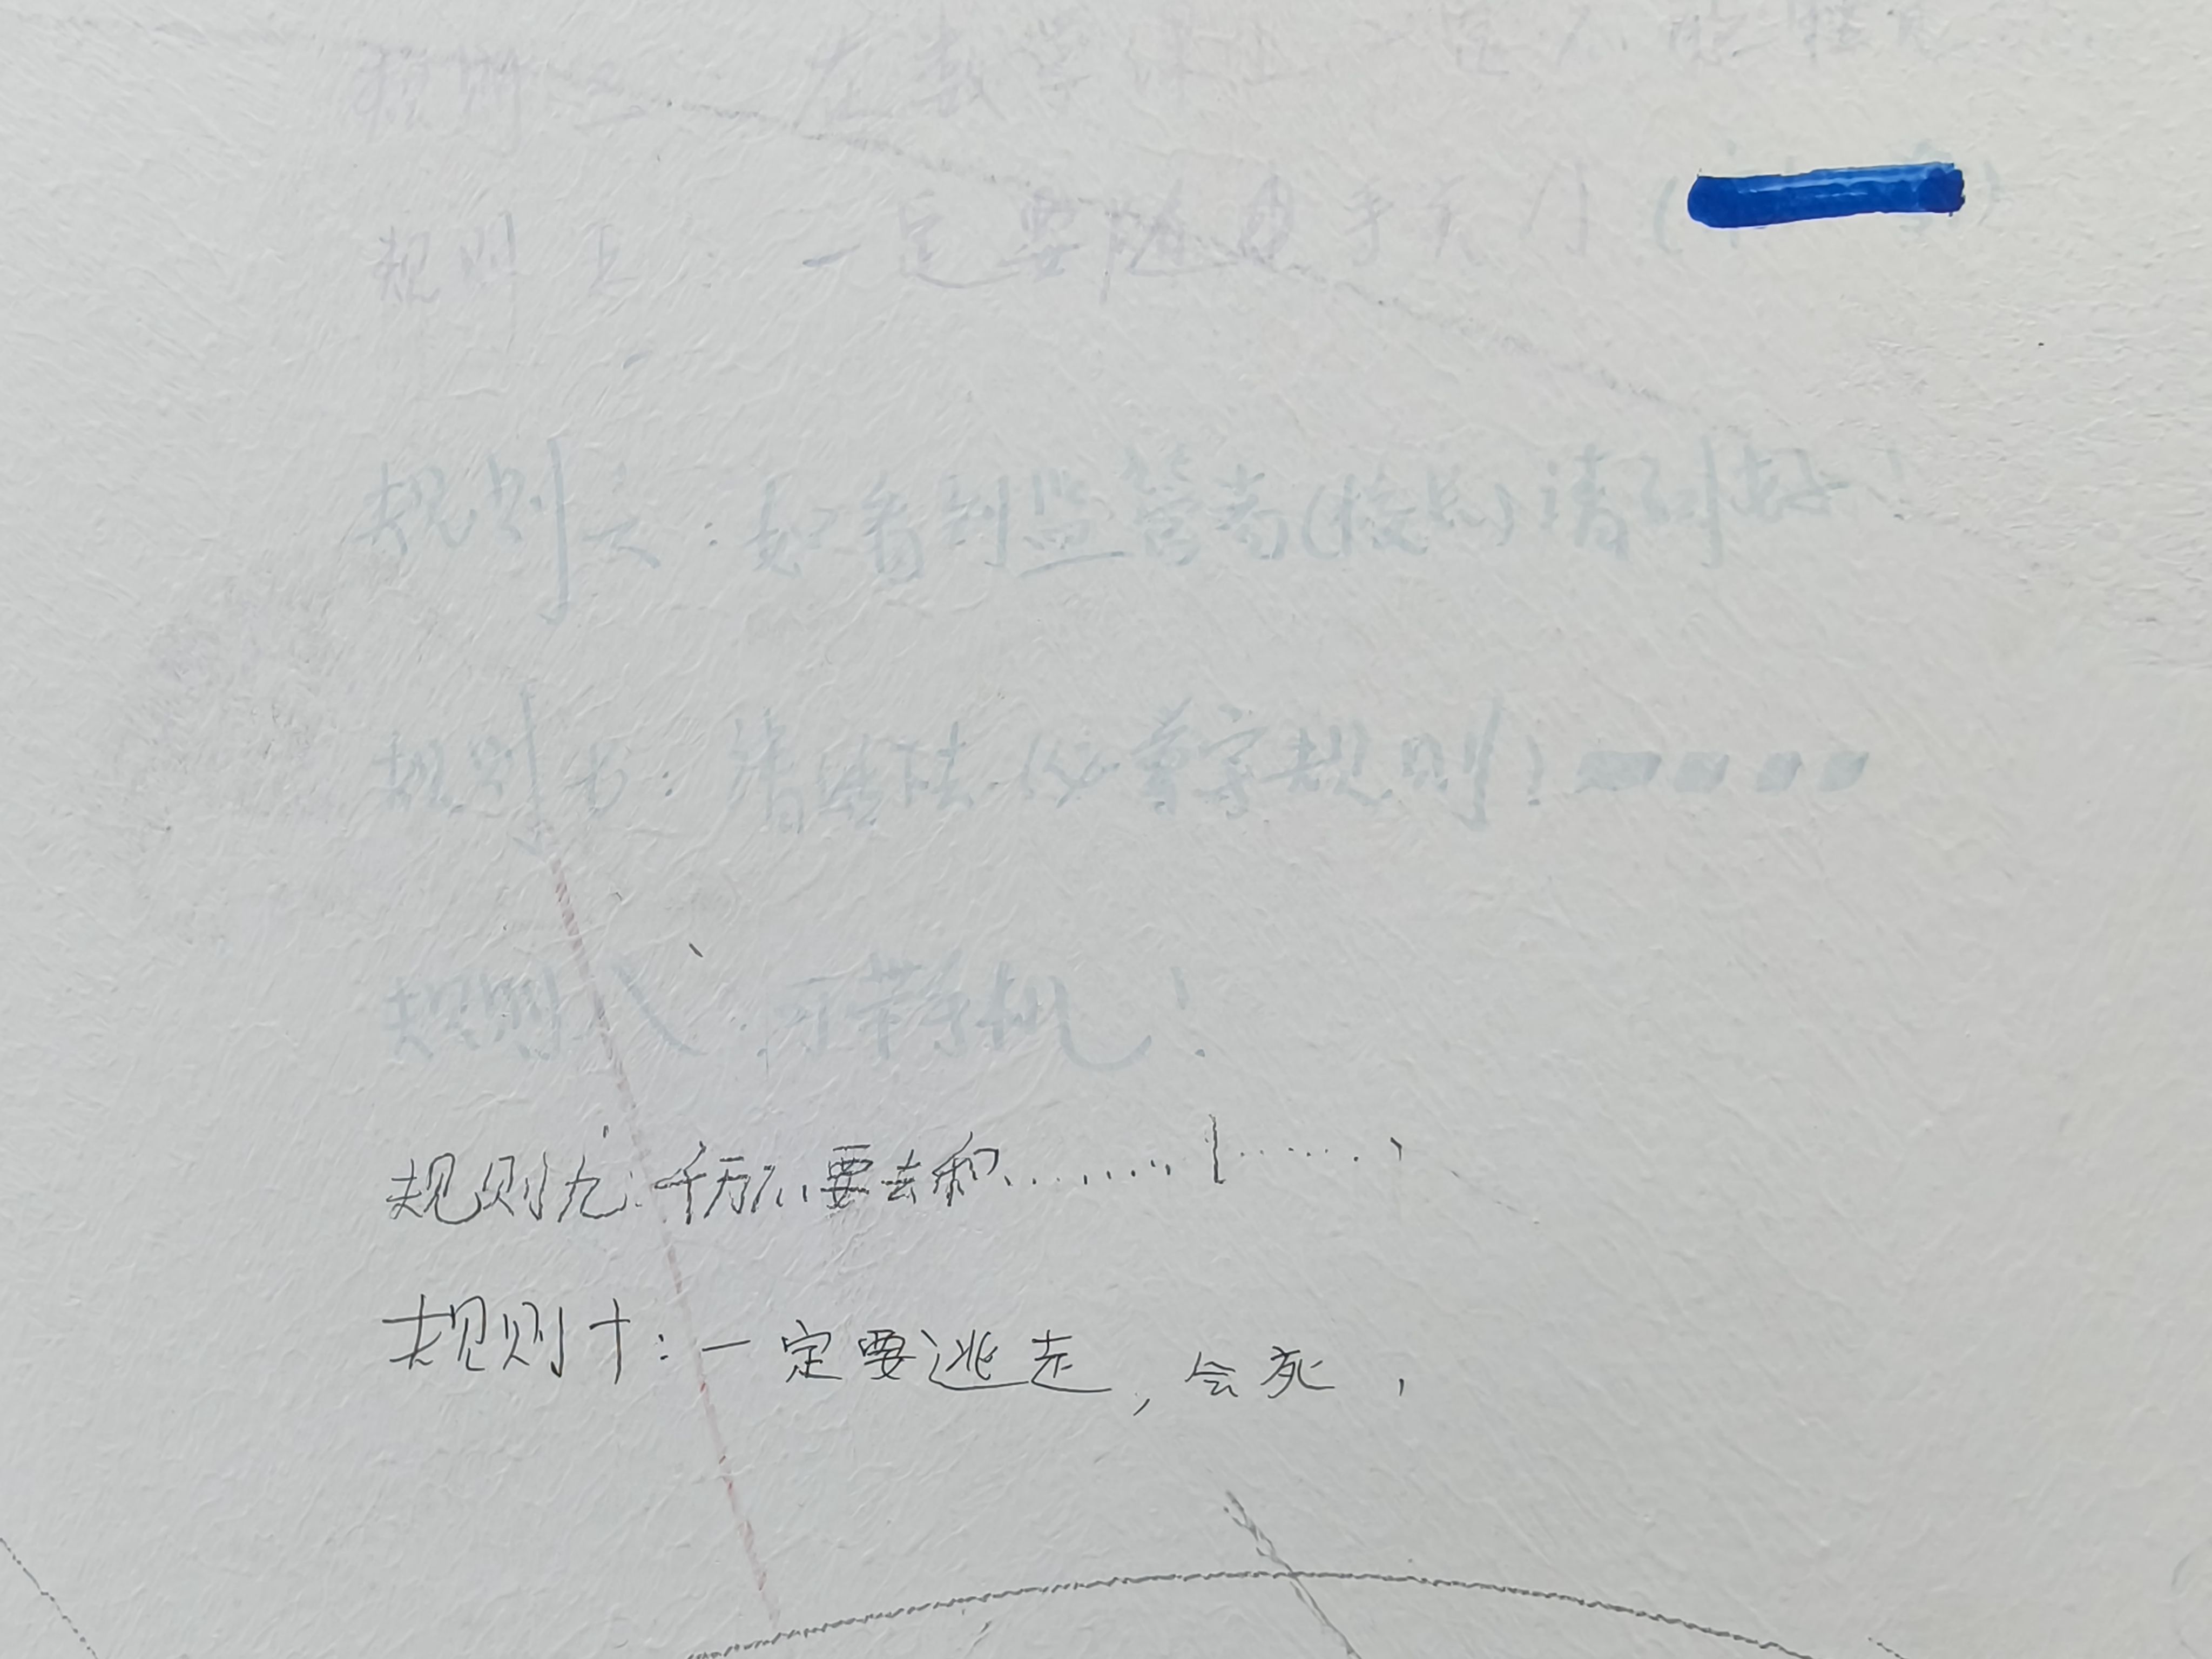 规则三：在数学课上一定不能睡觉
规则五：一定要随手关门（
规则六：如看到监管者(校长)请问好！
规则七：请 务必尊守规则！
规则八：可带手机！
规则九：千万不要去和.........!......、
规则十：一定要逃走，会死，